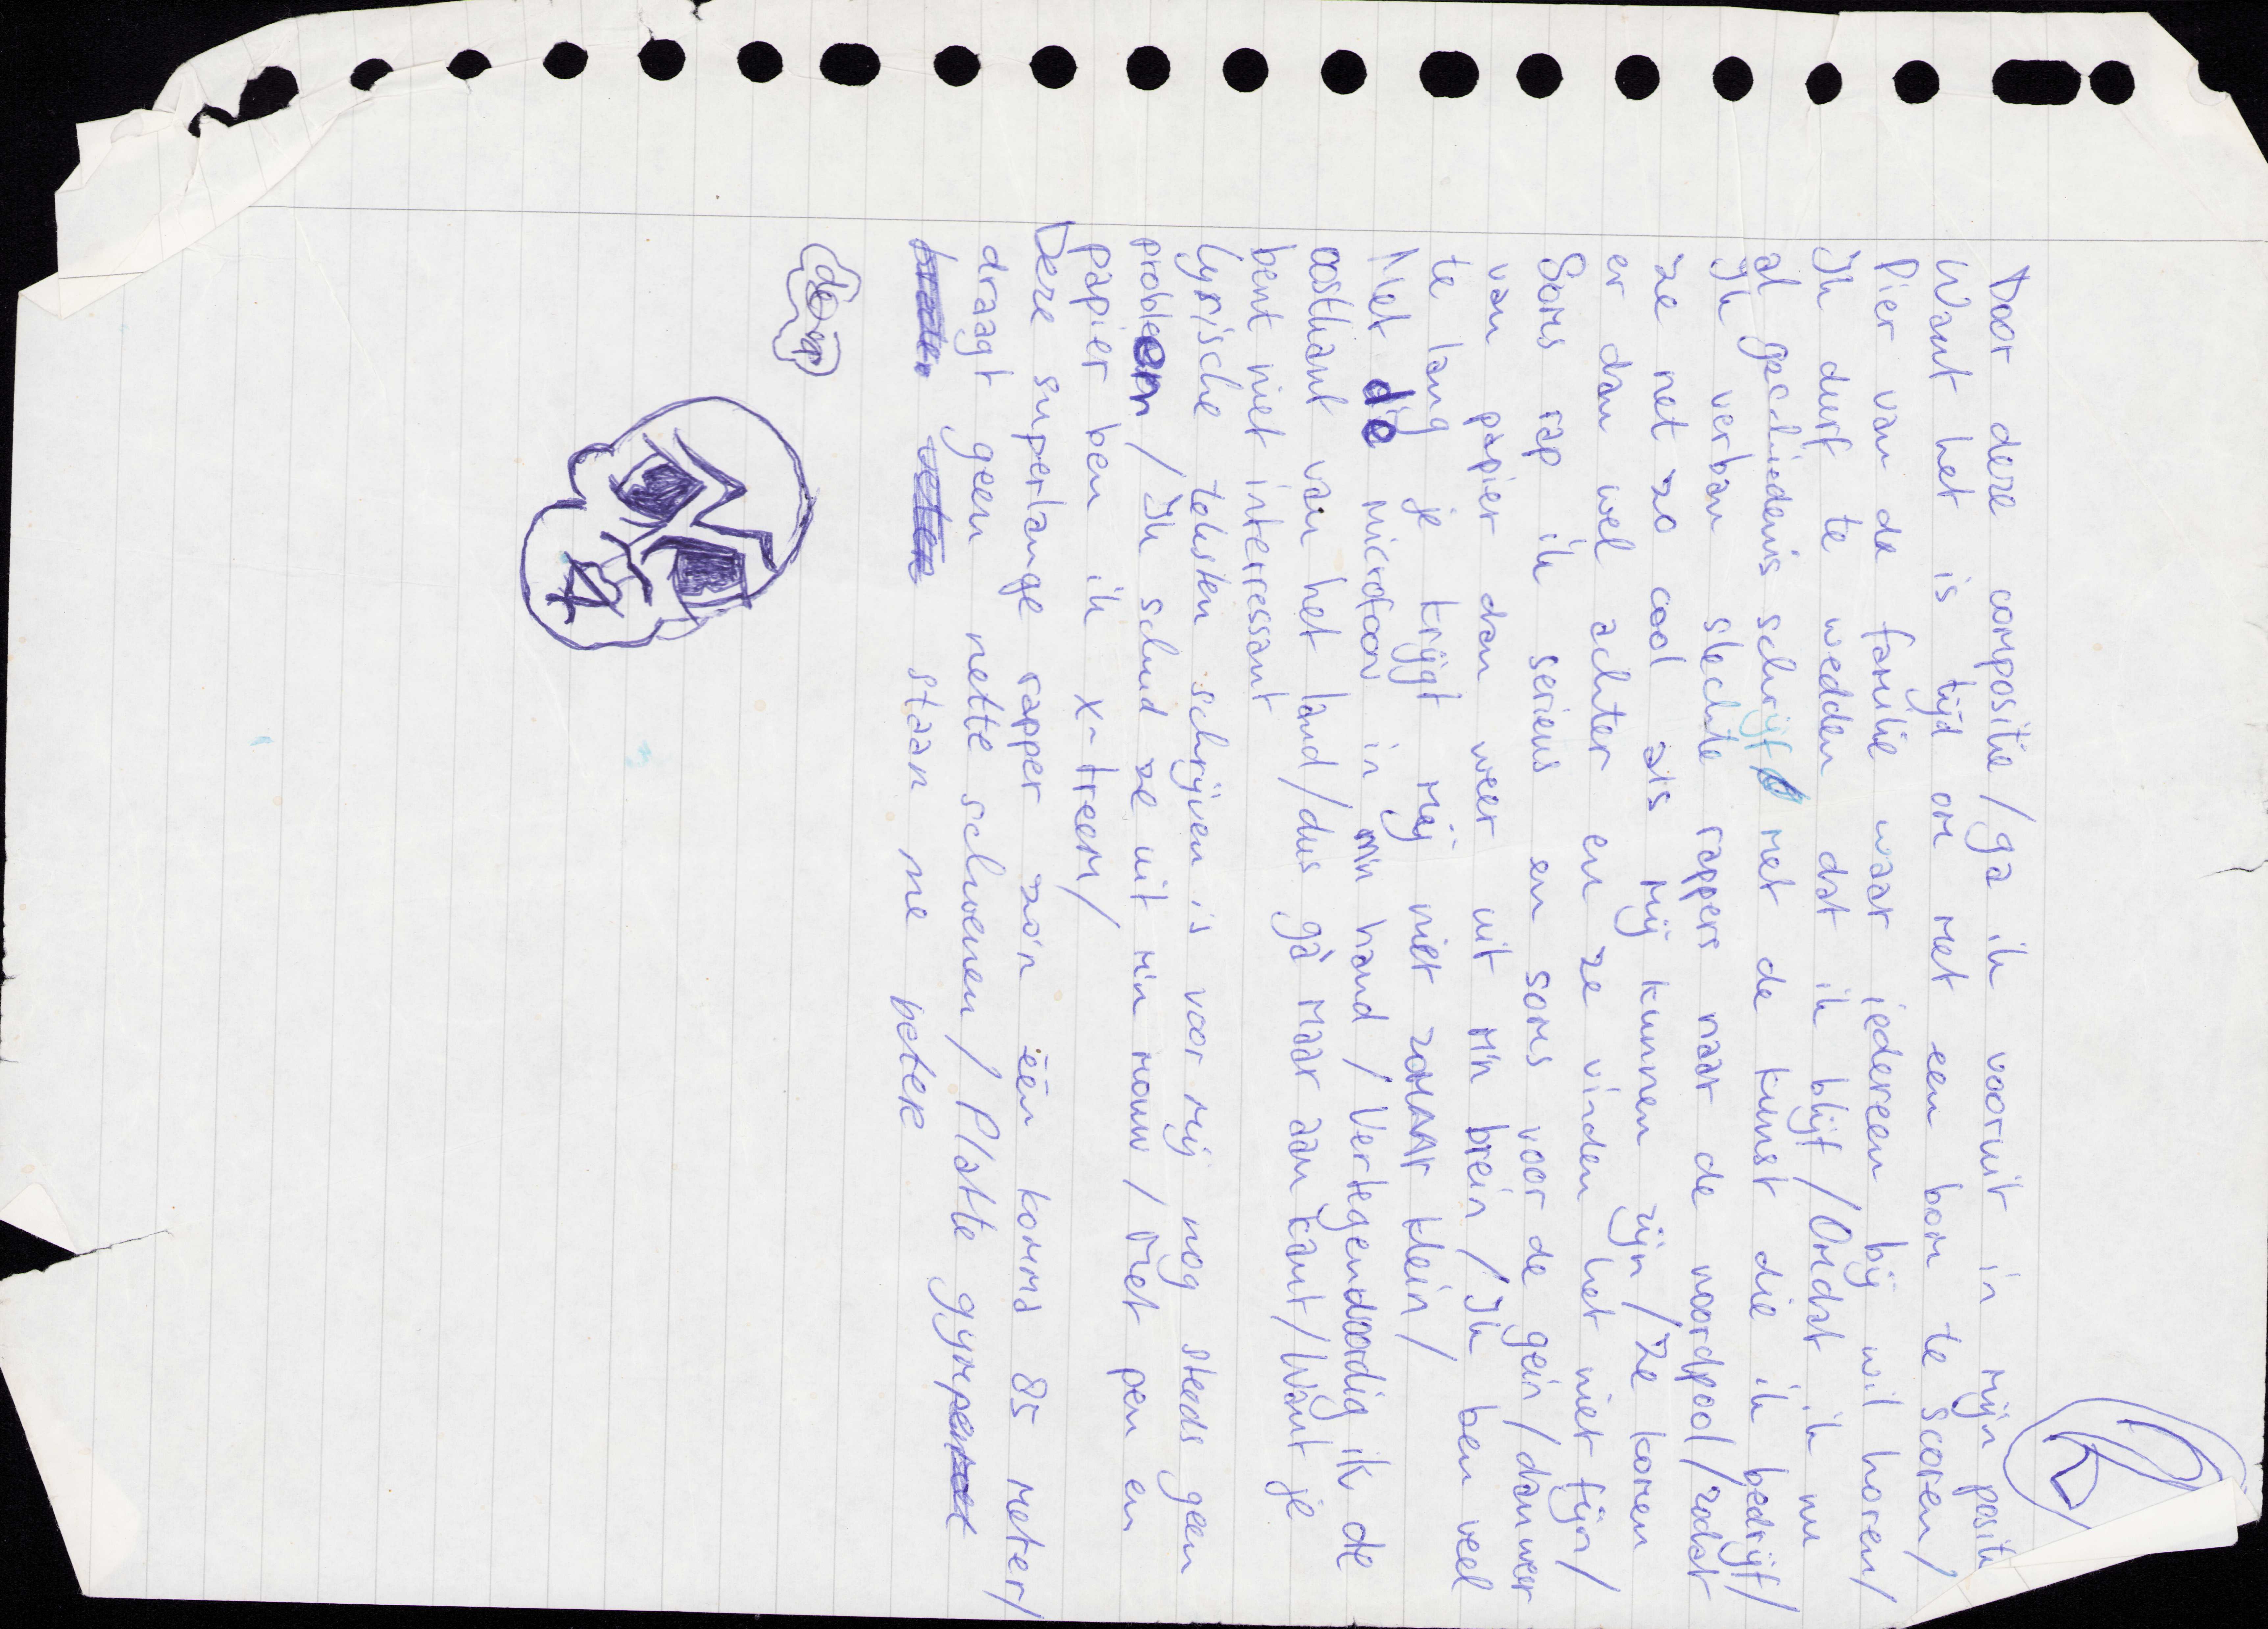 Door deze compositie / ga ik vooruit in mijn positi
Want het is tijd om met een bom te scoren /
Pier van de familie waar iedereen bij wil horen /
Ik durf te wedden dat ik blijf / Omdat ik nu
al geschiedenis schrijf met de kunst die ik bedrijf /
Ik verban slechte rappers naar de noordpool / zodat
ze net zo cool als mij kunnen zijn / Ze komen
er dan wel achter en ze vinden het niet fijn /
Soms rap ik serieus en soms voor de gein / dan weer
van papier dan weer uit m'n brein / Ik ben veel
te lang je krijgt mij niet zomaar klein /
Met die microfoon in m'n hand / Vertegenwoordig ik de
oostkant van het land / dus ga maar aan kant / Want je
bent niet interressant
Lyrische teksten schrijven is voor mij nog steeds geen
probleem / Ik schud ze uit m'n mouw / Met pen en
papier ben ik x-treem /
Deze superlange rapper zo'n één komma 85 meter /
draagt geen nette schoenen / Platte gympen
staan me beter